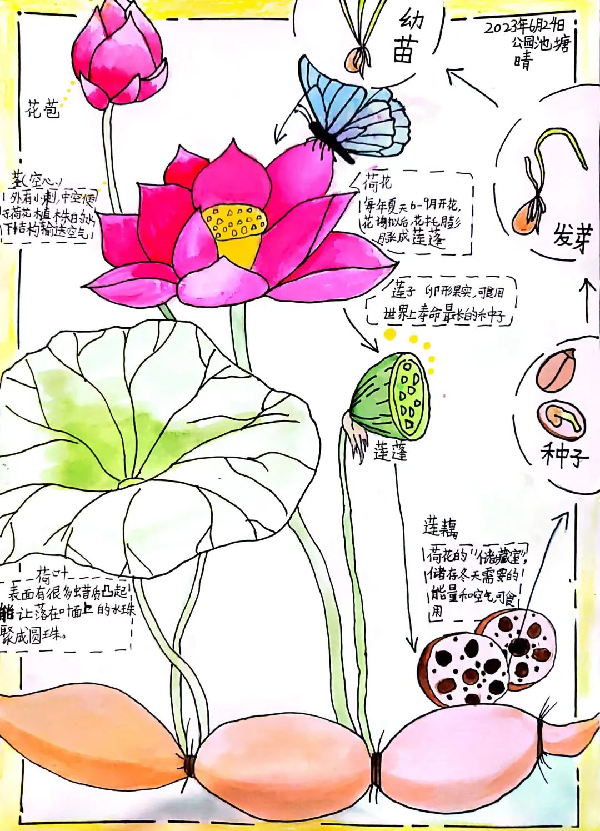 幼苗
2023年6月24日
公园池塘
晴
花苞
茎(空心)
外有小刺,中空倾
下结构输送空气
荷花
每年夏天6-9月开花,
花谢以后,花托膨
胀成莲蓬
发芽
莲子 卵形果实,可食用
世界上寿命最长的种子
莲蓬
种子
莲藕
荷花的“储藏室”,
储存冬天需要的
能量和空气,可食
用
荷叶
表面有很多蜡质凸起
能让落在叶面上的水珠
聚成圆珠。